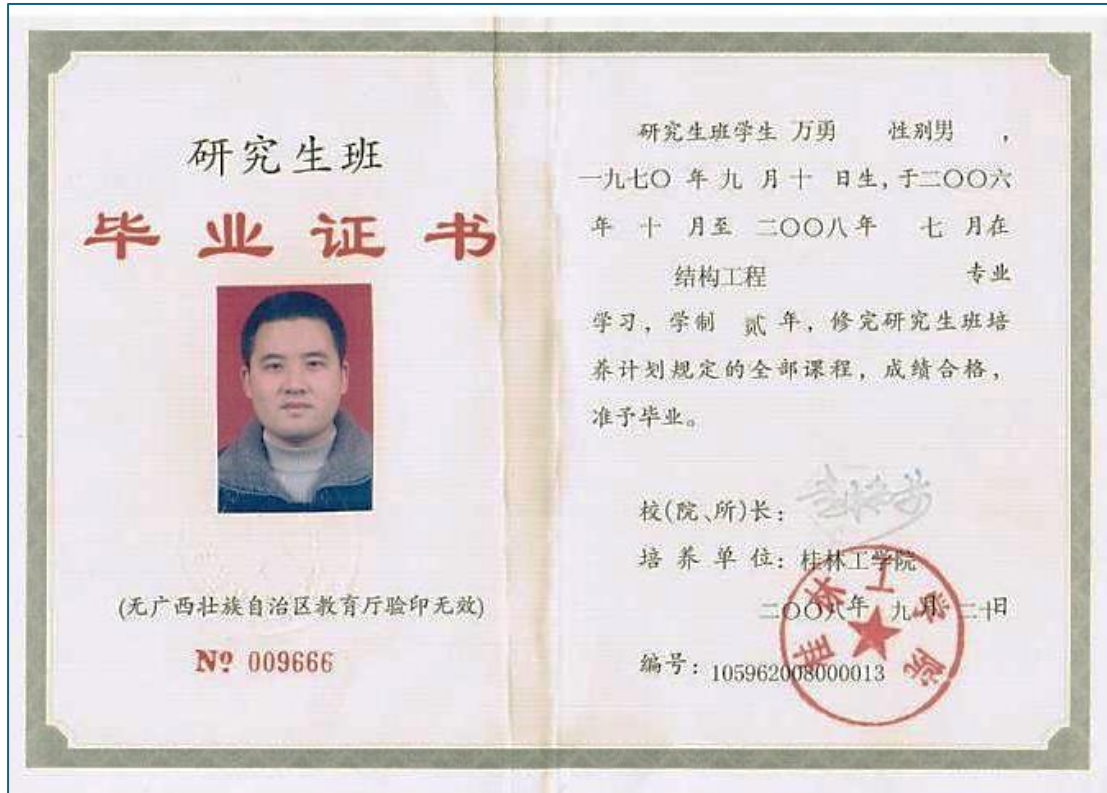 研究生班
毕业证书
(无广西壮族自治区教育厅验印无效)
№ 009666
研究生班学生 万勇 性别男 ，
一九七〇 年 九 月 十 日生，于二〇〇六
年 十 月至 二〇〇八年 七 月在
结构工程 专业
学习，学制 贰 年，修完研究生班培
养计划规定的全部课程，成绩合格，
准予毕业。
校(院、所)长：
培 养 单 位：桂林工学院
二〇〇八年 九月 二十日
编号：105962008000013
桂林工学院